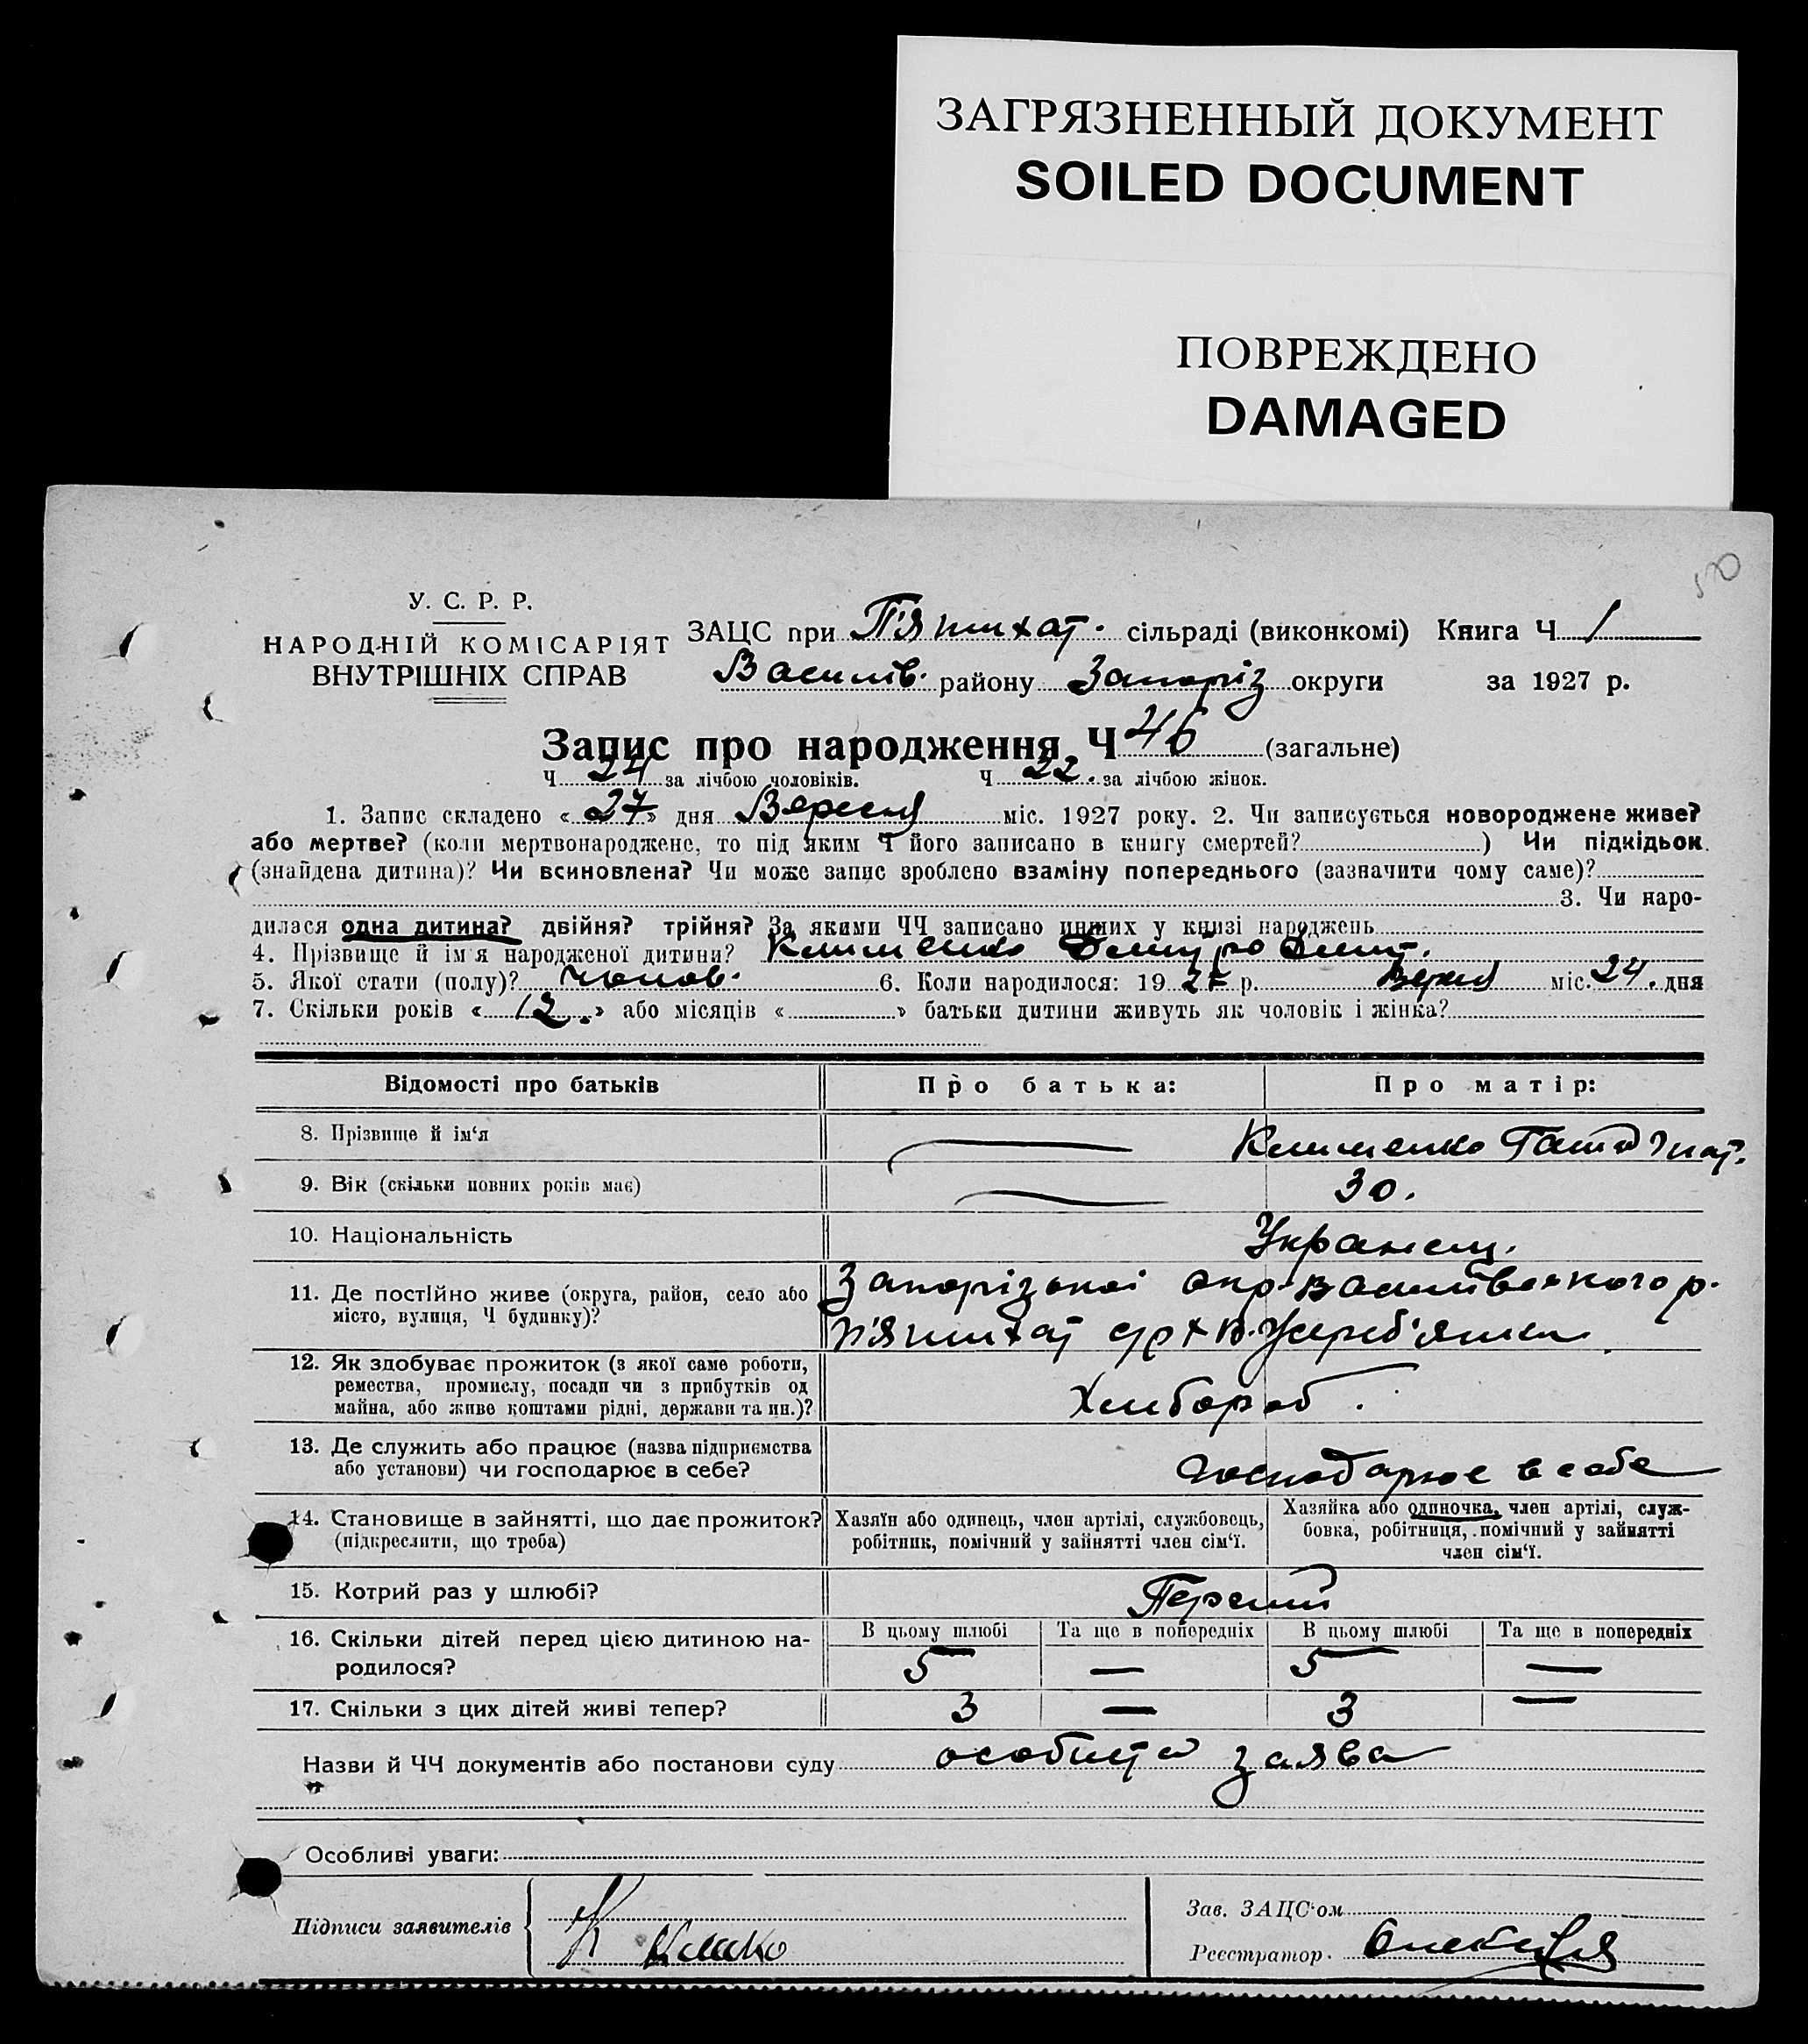 ЗАГРЯЗНЕННЫЙ ДОКУМЕНТ
SOILED DOCUMENT
ПОВРЕЖДЕНО
DAMAGED
У. С. Р. Р.
НАРОДНІЙ КОМІСАРІЯТ
ВНУТРІШНІХ СПРАВ
ЗАЦС при П'ятихат. сільраді (виконкомі) Книга Ч 1
Василів. району Запоріз округи за 1927 р.
Запис про народження Ч 46 (загальне)
Ч 24 за лічбою чоловіків. Ч 22. за лічбою жінок.
1. Запис складено « 27 » дня Вересня міс. 1927 року. 2. Чи записується новороджене живе?
або мертве? (коли мертвонароджене, то під яким Ч його записано в книгу смертей? ) Чи підкідьок
(знайдена дитина)? Чи всиновлена? Чи може запис зроблено взаміну попереднього (зазначити чому саме)?
3. Чи наро-
дилася одна дитина? двійня? трійня? За якими ЧЧ записано инших у книзі народжень
4. Прізвище й ім'я народженої дитини? Клименко Дмитро Дмит.
5. Якої стати (полу)? чолов. 6. Коли народилося: 19 27 р. Вересн міс. 24. дня
7. Скільки років « 12. » або місяців « » батьки дитини живуть як чоловік і жінка?
Відомості про батьків Про батька: Про матір:
8. Прізвище й ім'я Клименко Гашя Гнат.
9. Вік (скільки повних років має) 30.
10. Національність Украінец.
11. Де постійно живе (округа, район, село або Запорізькоі окр. Василівського р.
місто, вулиця, Ч будинку)? П'ятихат с/р х
12. Як здобуває прожиток (з якої саме роботи,
ремества, промислу, посади чи з прибутків од Хлибороб.
майна, або живе коштами рідні, держави та ин.)?
13. Де служить або працює (назва підприємства
або установи) чи господарює в себе? господарює в себе
14. Становище в зайнятті, що дає прожиток? Хазяїн або одинець, член артілі, службовець, Хазяйка або одиночка, член артілі, служ-
(підкреслити, що треба) робітник, помічний у зайнятті член сім'ї. бовка, робітниця, помічний у зайнятті
член сім'ї.
15. Котрий раз у шлюбі? Перший
16. Скільки дітей перед цією дитиною на- В цьому шлюбі Та ще в попередніх В цьому шлюбі Та ще в попередніх
родилося? 5 — 5 —
17. Скільки з цих дітей живі тепер? 3 — 3 —
Назви й ЧЧ документів або постанови суду особиста заява
Особливі уваги:
Підписи заявителів
Зав. ЗАЦС'ом
Реєстратор.